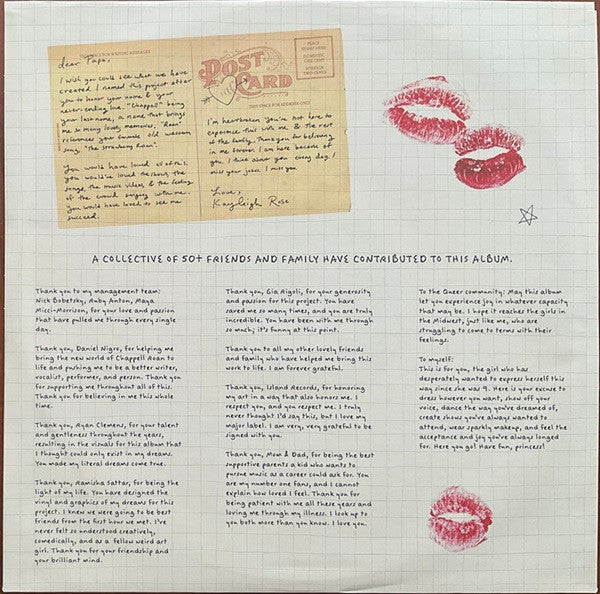 THIS SPACE FOR WRITING MESSAGES
dear Papa,
I wish you could see what we have
created. I named this project after
you to honor your name & your
never-ending love. "Chappell" being
your last name, a name that brings
me so many lovely memories. "Roan"
references your favorite old western
song, "The Strawberry Roan".
You would have loved all of this.
You would've loved the shows, the
songs, the music videos, & the feeling
of the crowd singing with me.
You would have loved to see me
succeed.
POST CARD
PLACE
STAMP HERE
DOMESTIC
ONE CENT
FOREIGN
TWO CENTS
THIS SPACE FOR ADDRESS ONLY
I'm heartbroken you're not here to
experience this with me & the rest
of the family. Thank you for believing
in me forever. I am here because of
you, I think about you every day. I
miss your jokes. I miss you.
Love,
Kayleigh Rose
A COLLECTIVE OF 50+ FRIENDS AND FAMILY HAVE CONTRIBUTED TO THIS ALBUM.
Thank you to my management team:
Nick Bobetsky, Ruby Anton, Maya
Micci-Morrison, for your love and passion
that have pulled me through every single
day.
Thank you, Daniel Nigro, for helping me
bring the new world of Chappell Roan to
life and pushing me to be a better writer,
vocalist, performer, and person. Thank you
for supporting me throughout all of this.
Thank you for believing in me this whole
time.
Thank you, Ryan Clemens, for your talent
and gentleness throughout the years,
resulting in the visuals for this album that
I thought could only exist in my dreams.
You made my literal dreams come true.
Thank you, Ramisha Sattar, for being the
light of my life. You have designed the
vinyl and graphics of my dreams for this
project. I knew we were going to be best
friends from the first hour we met. I've
never felt so understood creatively,
comedically, and as a fellow weird art
girl. Thank you for your friendship and
your brilliant mind.
Thank you, Gia Rigoli, for your generosity
and passion for this project. You have
saved me so many times, and you are truly
incredible. You have been with me through
so much; it's funny at this point.
Thank you to all my other lovely friends
and family who have helped me bring this
work to life. I am forever grateful.
Thank you, Island Records, for honoring
my art in a way that also honors me. I
respect you, and you respect me. I truly
never thought I'd say this, but I love my
major label. I am very, very grateful to be
signed with you.
Thank you, Mom & Dad, for being the best
supportive parents a kid who wants to
pursue music as a career could ask for. You
are my number one fans, and I cannot
explain how loved I feel. Thank you for
being patient with me all these years and
loving me through my illness. I look up to
you both more than you know. I love you.
To the Queer community: May this album
let you experience joy in whatever capacity
that may be. I hope it reaches the girls in
the Midwest, just like me, who are
struggling to come to terms with their
feelings.
To myself:
This is for you, the girl who has
desperately wanted to express herself this
way since she was 9. Here is your excuse to
dress however you want, show off your
voice, dance the way you've dreamed of,
create shows you've always wanted to
attend, wear sparkly makeup, and feel the
acceptance and joy you've always longed
for. Here you go! Have fun, princess!